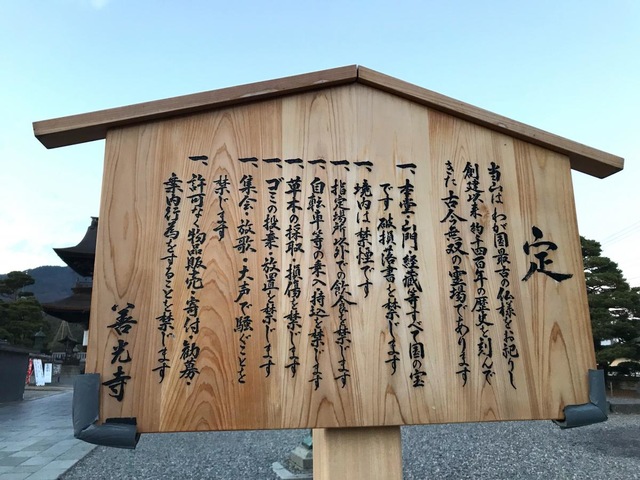 定
当山は わが国最古の仏様をお祀りし
創建以来 約千四百年の歴史を刻んで
きた 古今無双の霊場であります
一、本堂・山門・経蔵等すべて国の宝
です 破損落書を禁じます
一、境内は 禁煙です
一、指定場所以外での飲食を禁じます
一、自転車等の乗入・持込を禁じます
一、草木の採取・損傷を禁じます
一、ゴミの投棄・放置を禁じます
一、集会・放歌・大声で騒ぐことを
禁じます
一、許可なく物品販売・寄付・勧募・
案内行為をすることを禁じます
善光寺